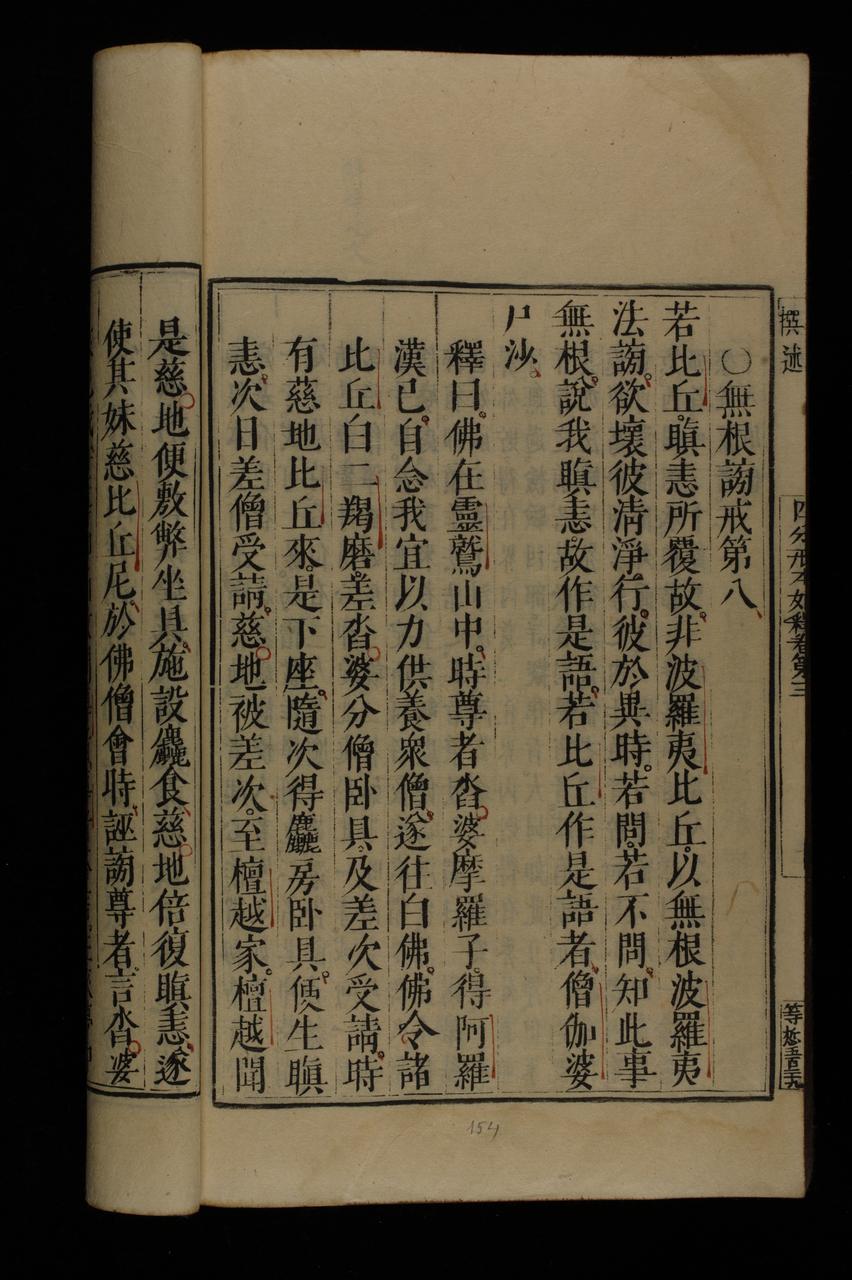 撰述
四分戒本如釋卷第三
〇無根謗戒第八
若比丘瞋恚所覆故非波羅夷比丘以無根波羅夷
法謗欲壞彼清淨行彼於異時若問若不問知此事
無根說我瞋恚故作是語若比丘作是語者僧伽婆
尸沙
釋曰佛在靈鷲山中時尊者沓婆摩羅子得阿羅
漢已自念我宜以力供養衆僧遂往白佛佛令諸
比丘白二羯磨差沓婆分僧臥具及差次受請時
有慈地比丘來是下座隨次得麤房臥具便生瞋
恚次日差僧受請慈地被差次至檀越家檀越聞
是慈地便敷弊坐具施設麤食慈地倍復瞋恚遂
使其妹慈比丘尼於佛僧會時誣謗尊者言沓婆
154